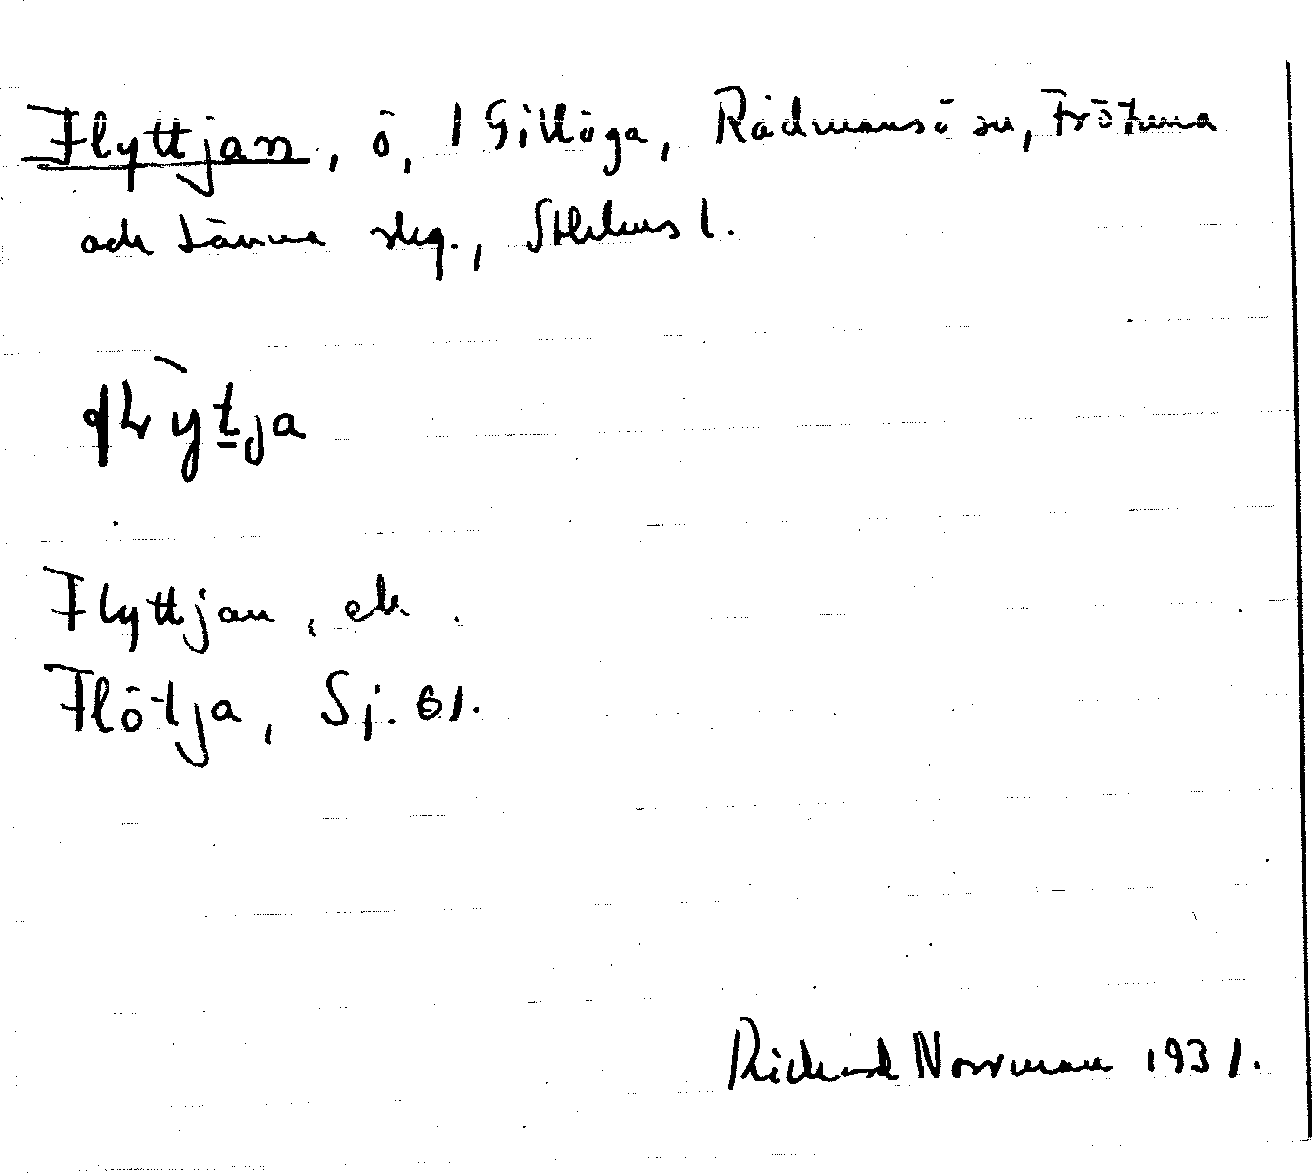 Flyttjan, ö, i Gillöga, Rådmansö sn, Frötuna
och Länna skg., Sthlms l.
flytja
Flyttjan, ek.
Flötja, Sj. 61.
Rickard Norrman 1931.